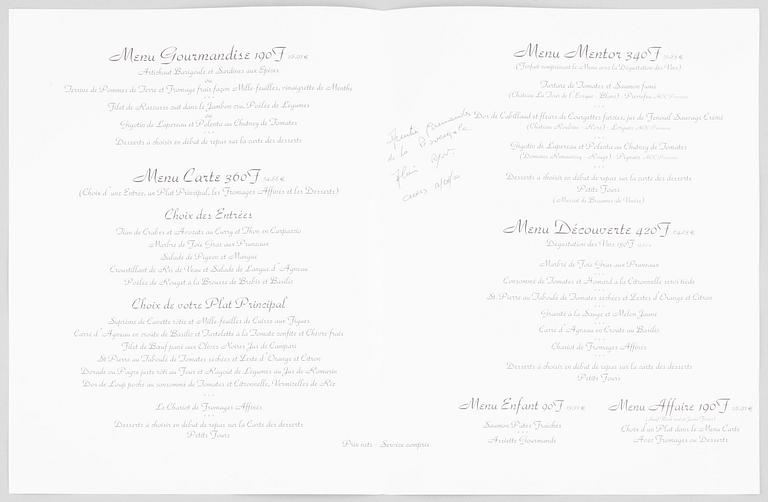 Menu Gourmandise 190F
Artichaut Barigoule et Sardines aux Epices
ou
Terrine de Pommes de Terre et Fromage frais façon Mille-feuilles, vinaigrette de Menthe
Filet de Rascasse cuit dans le Jambon cru, Poêlée de Légumes
ou
Gigotin de Lapereau et Polenta au Chutney de Tomates
Desserts à choisir en début de repas sur la carte des desserts
Menu Carte 360F 54.88 €
(Choix d'une Entrée, un Plat Principal, les Fromages Affinés et les Desserts)
Choix des Entrées
Tian de Crabes et Avocats au Curry et Thon en Carpaccio
Marbré de Foie Gras aux Pruneaux
Salade de Pigeon et Mangue
Croustillant de Ris de Veau et Salade de Langue d'Agneau
Poêlée de Rouget à la Brousse de Brebis et Basilic
Choix de votre Plat Principal
Suprême de Canette rôtie et Mille-feuilles de Cuisse aux Figues
Carré d'Agneau en croute de Basilic et Tartelette à la Tomate confite et Chèvre frais
Filet de Bœuf pané aux Olives Noires Jus de Campari
St Pierre au Taboulé de Tomates séchées et Zeste d'Orange et Citron
Dorade ou Pagre juste rôti au Four et Ragout de Légumes au Jus de Romarin
Dos de Loup poché au consommé de Tomates et Citronnelle, Vermicelles de Riz
Le Chariot de Fromages Affinés
Desserts à choisir en début de repas sur la carte des desserts
Petits Fours
Prix nets - Service compris
de la
Menu Mentor 340F
(Forfait comprenant le Menu avec la Dégustation des Vins)
Tartare de Tomates et Saumon fumé
(Château La Tour de l'Evêque - Blanc) - Pierrefeu AOC Provence
Dos de Cabillaud et fleurs de Courgettes farcies, jus de Fenouil Sauvage Crémé
Gigotin de Lapereau et Polenta au Chutney de Tomates
Desserts à choisir en début de repas sur la carte des desserts
Petits Fours
(Muscat de Beaumes de Venise)
Menu Découverte 420F
Dégustation des Vins 190F
Marbré de Foie Gras aux Pruneaux
Consommé de Tomates et Homard à la Citronnelle servi tiède
St. Pierre au Taboulé de Tomates séchées et Zestes d'Orange et Citron
Granité à la Sauge et Melon Jaune
Carré d'Agneau en Croute au Basilic
Chariot de Fromages Affinés
Desserts à choisir en début de repas sur la carte des desserts
Petits Fours
Menu Enfant 90F
Saumon Pâtes Fraiches
Assiette Gourmande
Menu Affaire 190F
Choix d'un Plat dans le Menu Carte
Avec Fromages ou Desserts